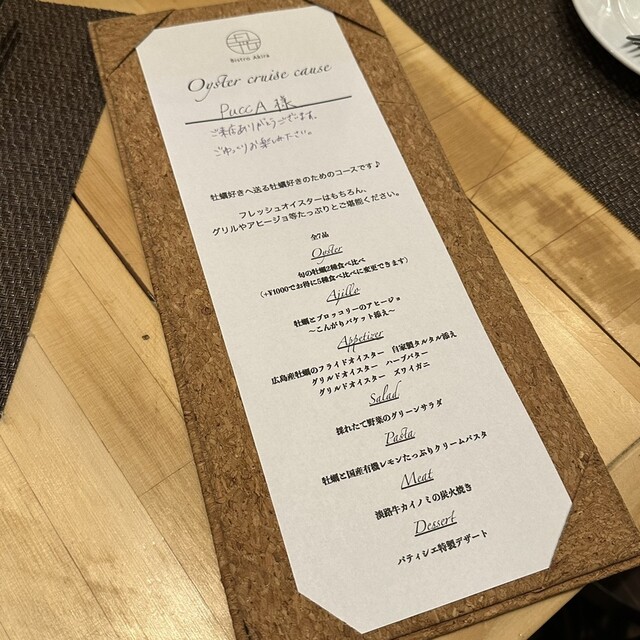 Bistro Akira
Oyster cruise cause
PuccA 様
ご来店ありがとうございます。
ごゆっくりお楽しみ下さい。
牡蠣好きへ送る牡蠣好きのためのコースです♪
フレッシュオイスターはもちろん、
グリルやアヒージョ等たっぷりとご堪能ください。
全7品
Oyster
旬の牡蠣2種食べ比べ
(+¥1000でお得に5種食べ比べに変更できます)
Ajillo
牡蠣とブロッコリーのアヒージョ
～こんがりバケット添え～
Appetizer
広島産牡蠣のフライドオイスター 自家製タルタル添え
グリルドオイスター ハーブバター
グリルドオイスター ズワイガニ
Salad
採れたて野菜のグリーンサラダ
Pasta
牡蠣と国産有機レモンたっぷりクリームパスタ
Meat
淡路牛カイノミの炭火焼き
Dessert
パティシエ特製デザート